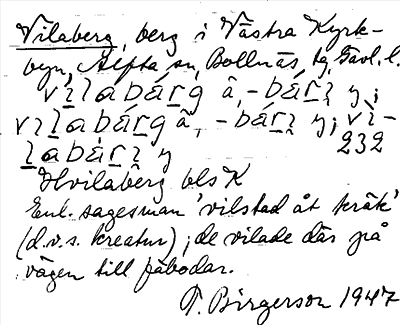 Vilaberg, berg i Västra Kyrk-
byn, Alfta sn, Bollnäs, tg, Gävl. l.
vìlabárg â, -bárı y;
vìlabárg â, -bárı y; vì-
labárı y 232
Hvilaberg bls K
Enl. sagesman 'vilstad åt kräk'
(d.v.s. kreatur); de vilade där på
vägen till fäbodar.
T. Birgerson 1947